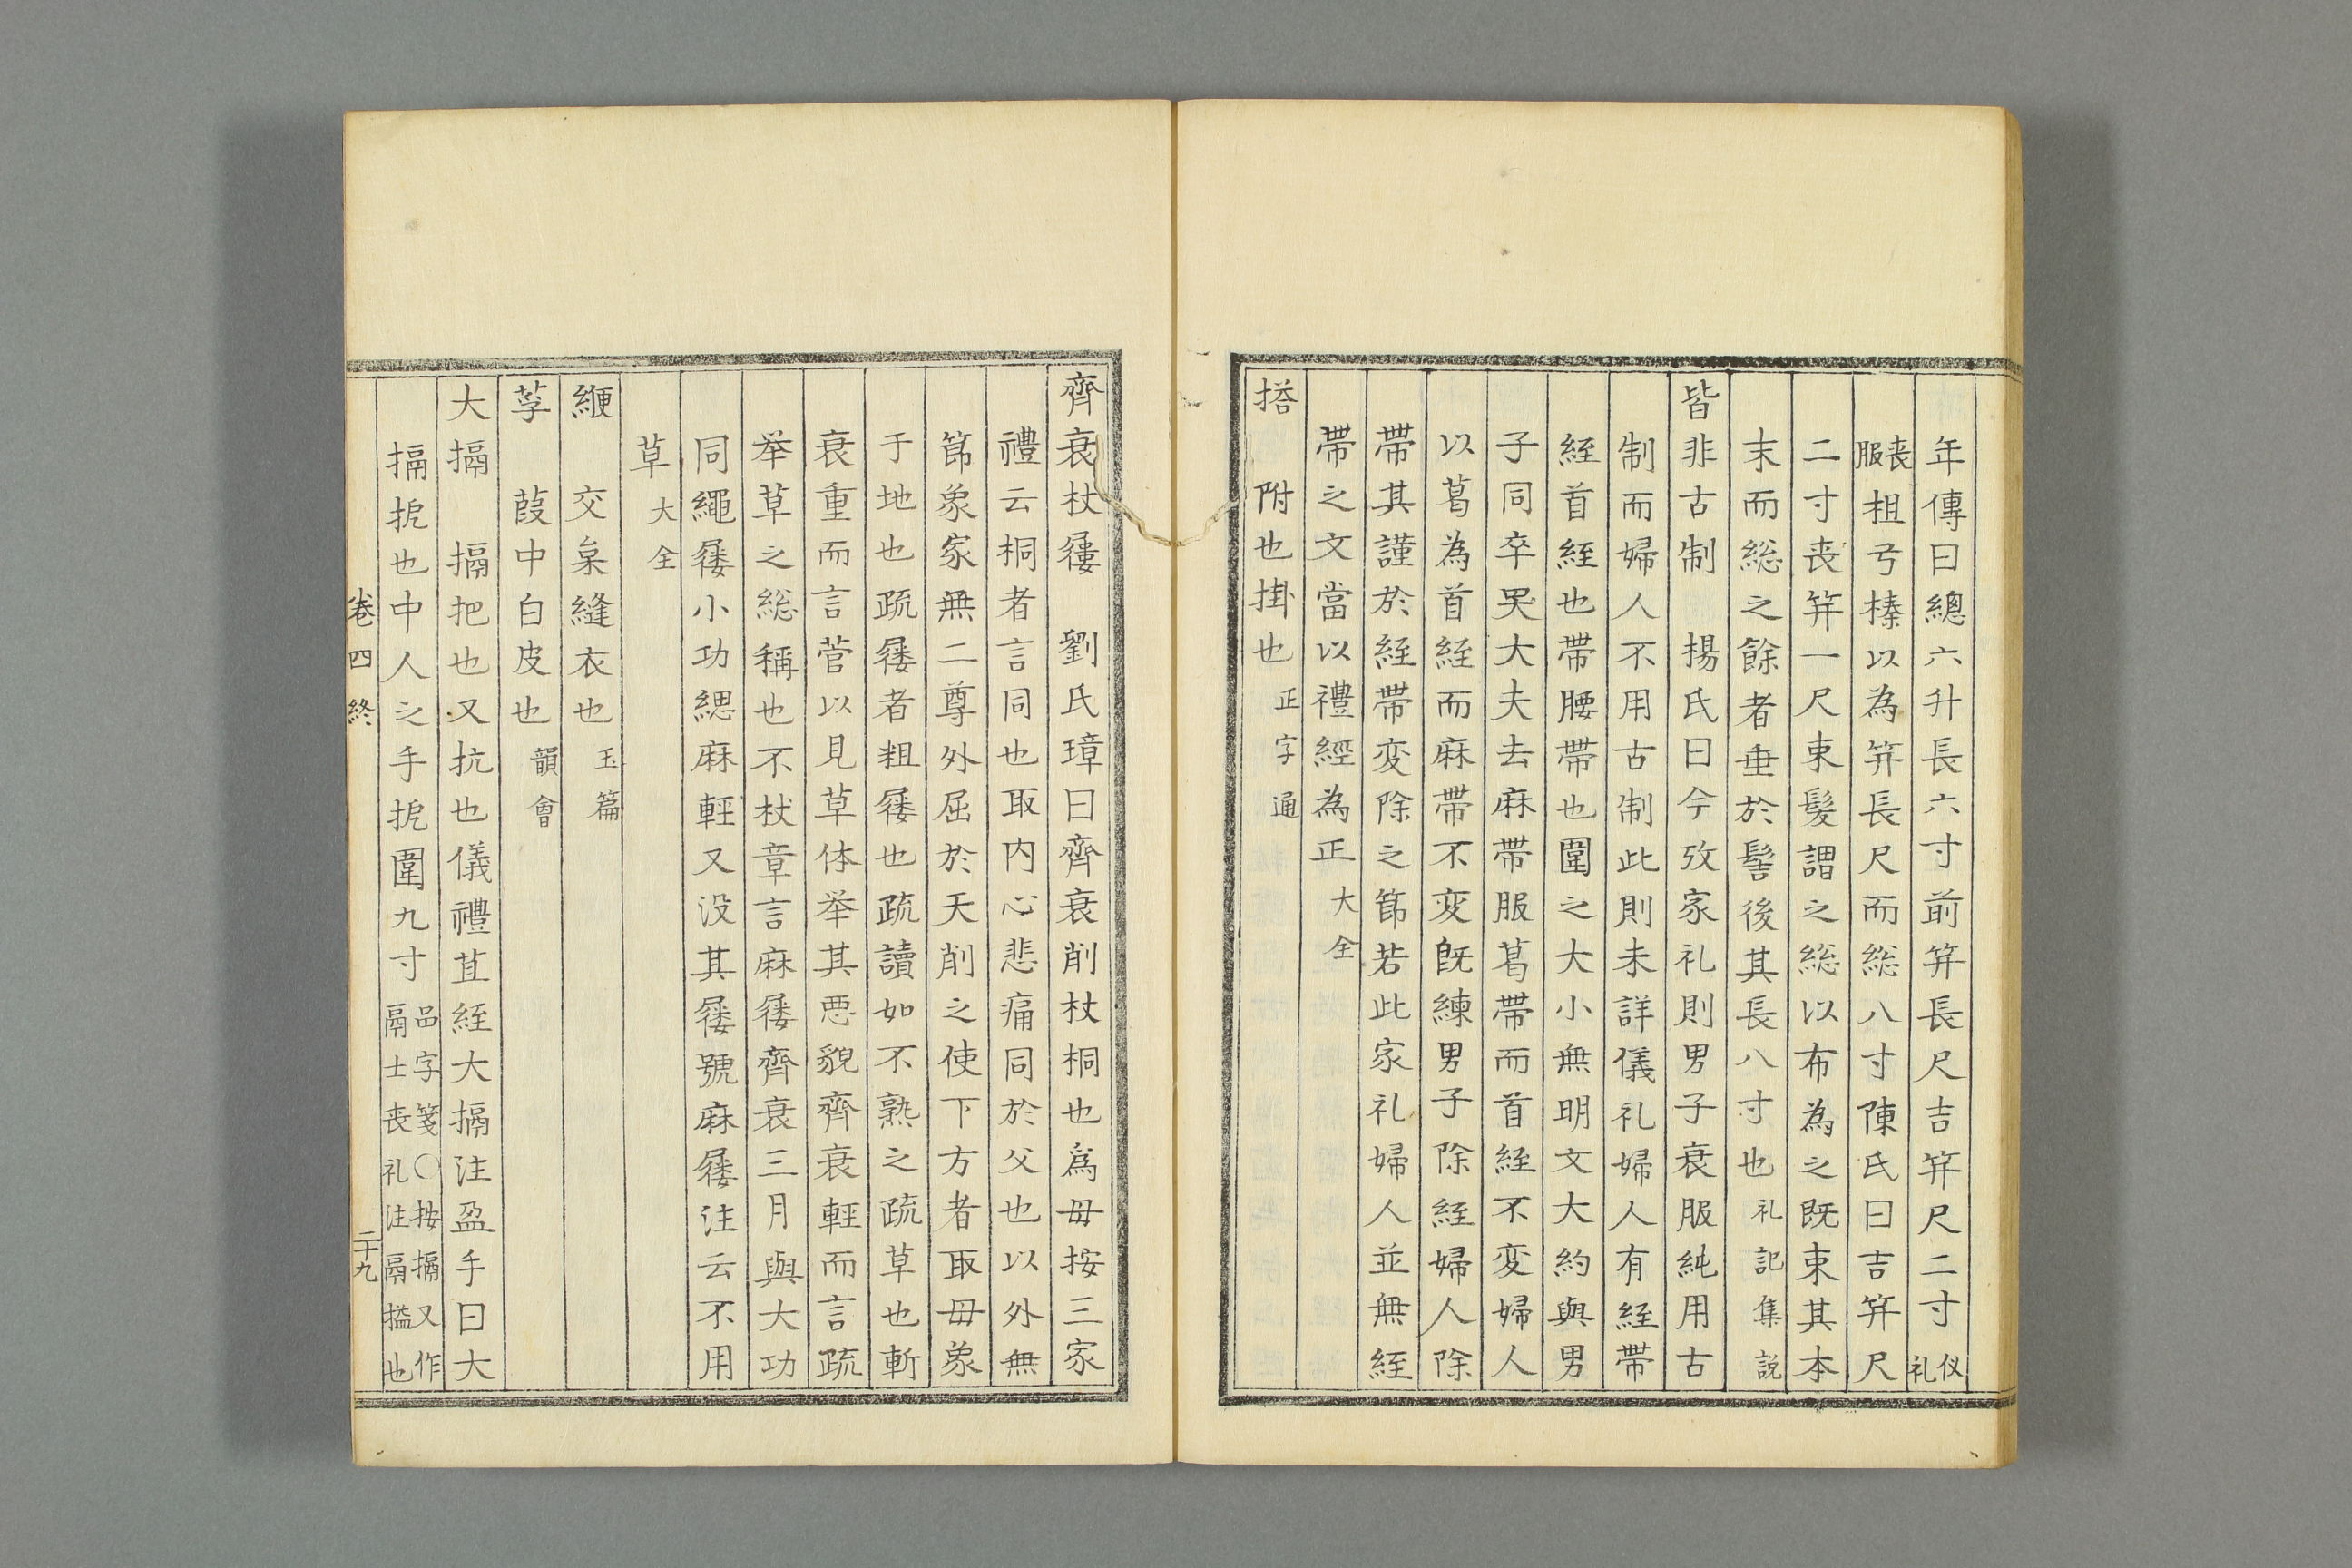 年傳曰總六升長六寸前笄長尺吉笄尺二寸仪礼
喪服柤弓榛以為笄長尺而総八寸陳氏曰吉笄尺
二寸丧笄一尺束髮謂之総以布為之既束其本
末而総之餘者垂於髻後其長八寸也礼記集説
皆非古制　楊氏曰今攷家礼則男子衰服純用古
制而婦人不用古制此則未詳儀礼婦人有絰帶
絰首絰也帶腰帶也圍之大小無明文大約與男
子同卒哭大夫去麻帶服葛帶而首絰不変婦人
以葛為首絰而麻帶不変既練男子除絰婦人除
帶其謹於絰帶変除之節若此家礼婦人並無絰
帶之文當以禮經為正大全
搭　附也掛也正字通
齊衰杖屨　劉氏璋曰齊衰削杖桐也爲母按三家
禮云桐者言同也取内心悲痛同於父也以外無
節象家無二尊外屈於天削之使下方者取母象
于地也疏屨者粗屨也疏讀如不熟之疏草也斬
衰重而言菅以見草体举其悪貌齊衰輕而言疏
举草之総稱也不杖章言麻屨齊衰三月與大功
同繩屨小功緦麻輕又没其屨號麻屨注云不用
草大全
緶　交枲縫衣也玉篇
莩　葭中白皮也韻會
大搹　搹把也又抗也儀禮苴絰大搹注盈手曰大
搹搹扼也中人之手扼圍九寸品字箋〇按搹又作鬲士丧礼注鬲搤也
卷四終
二十九